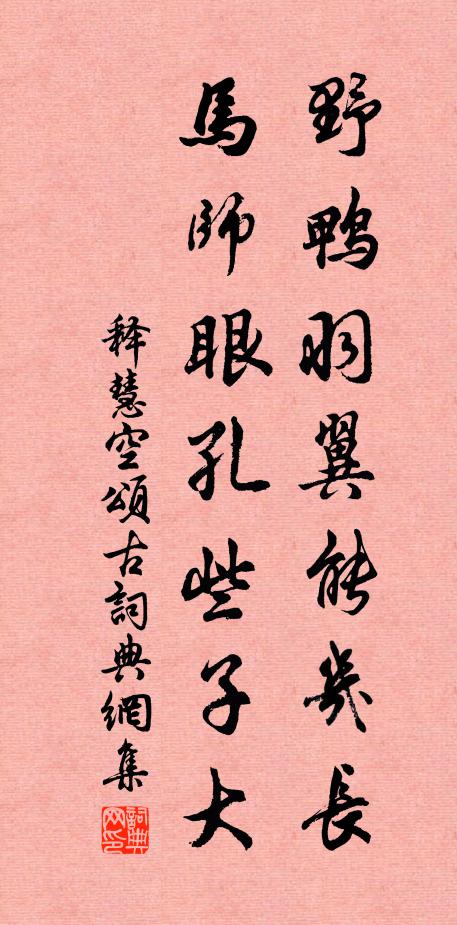 野鴨羽翼能幾長
馬師眼孔些子大
释慧空頌古詞典網集
詞典网印